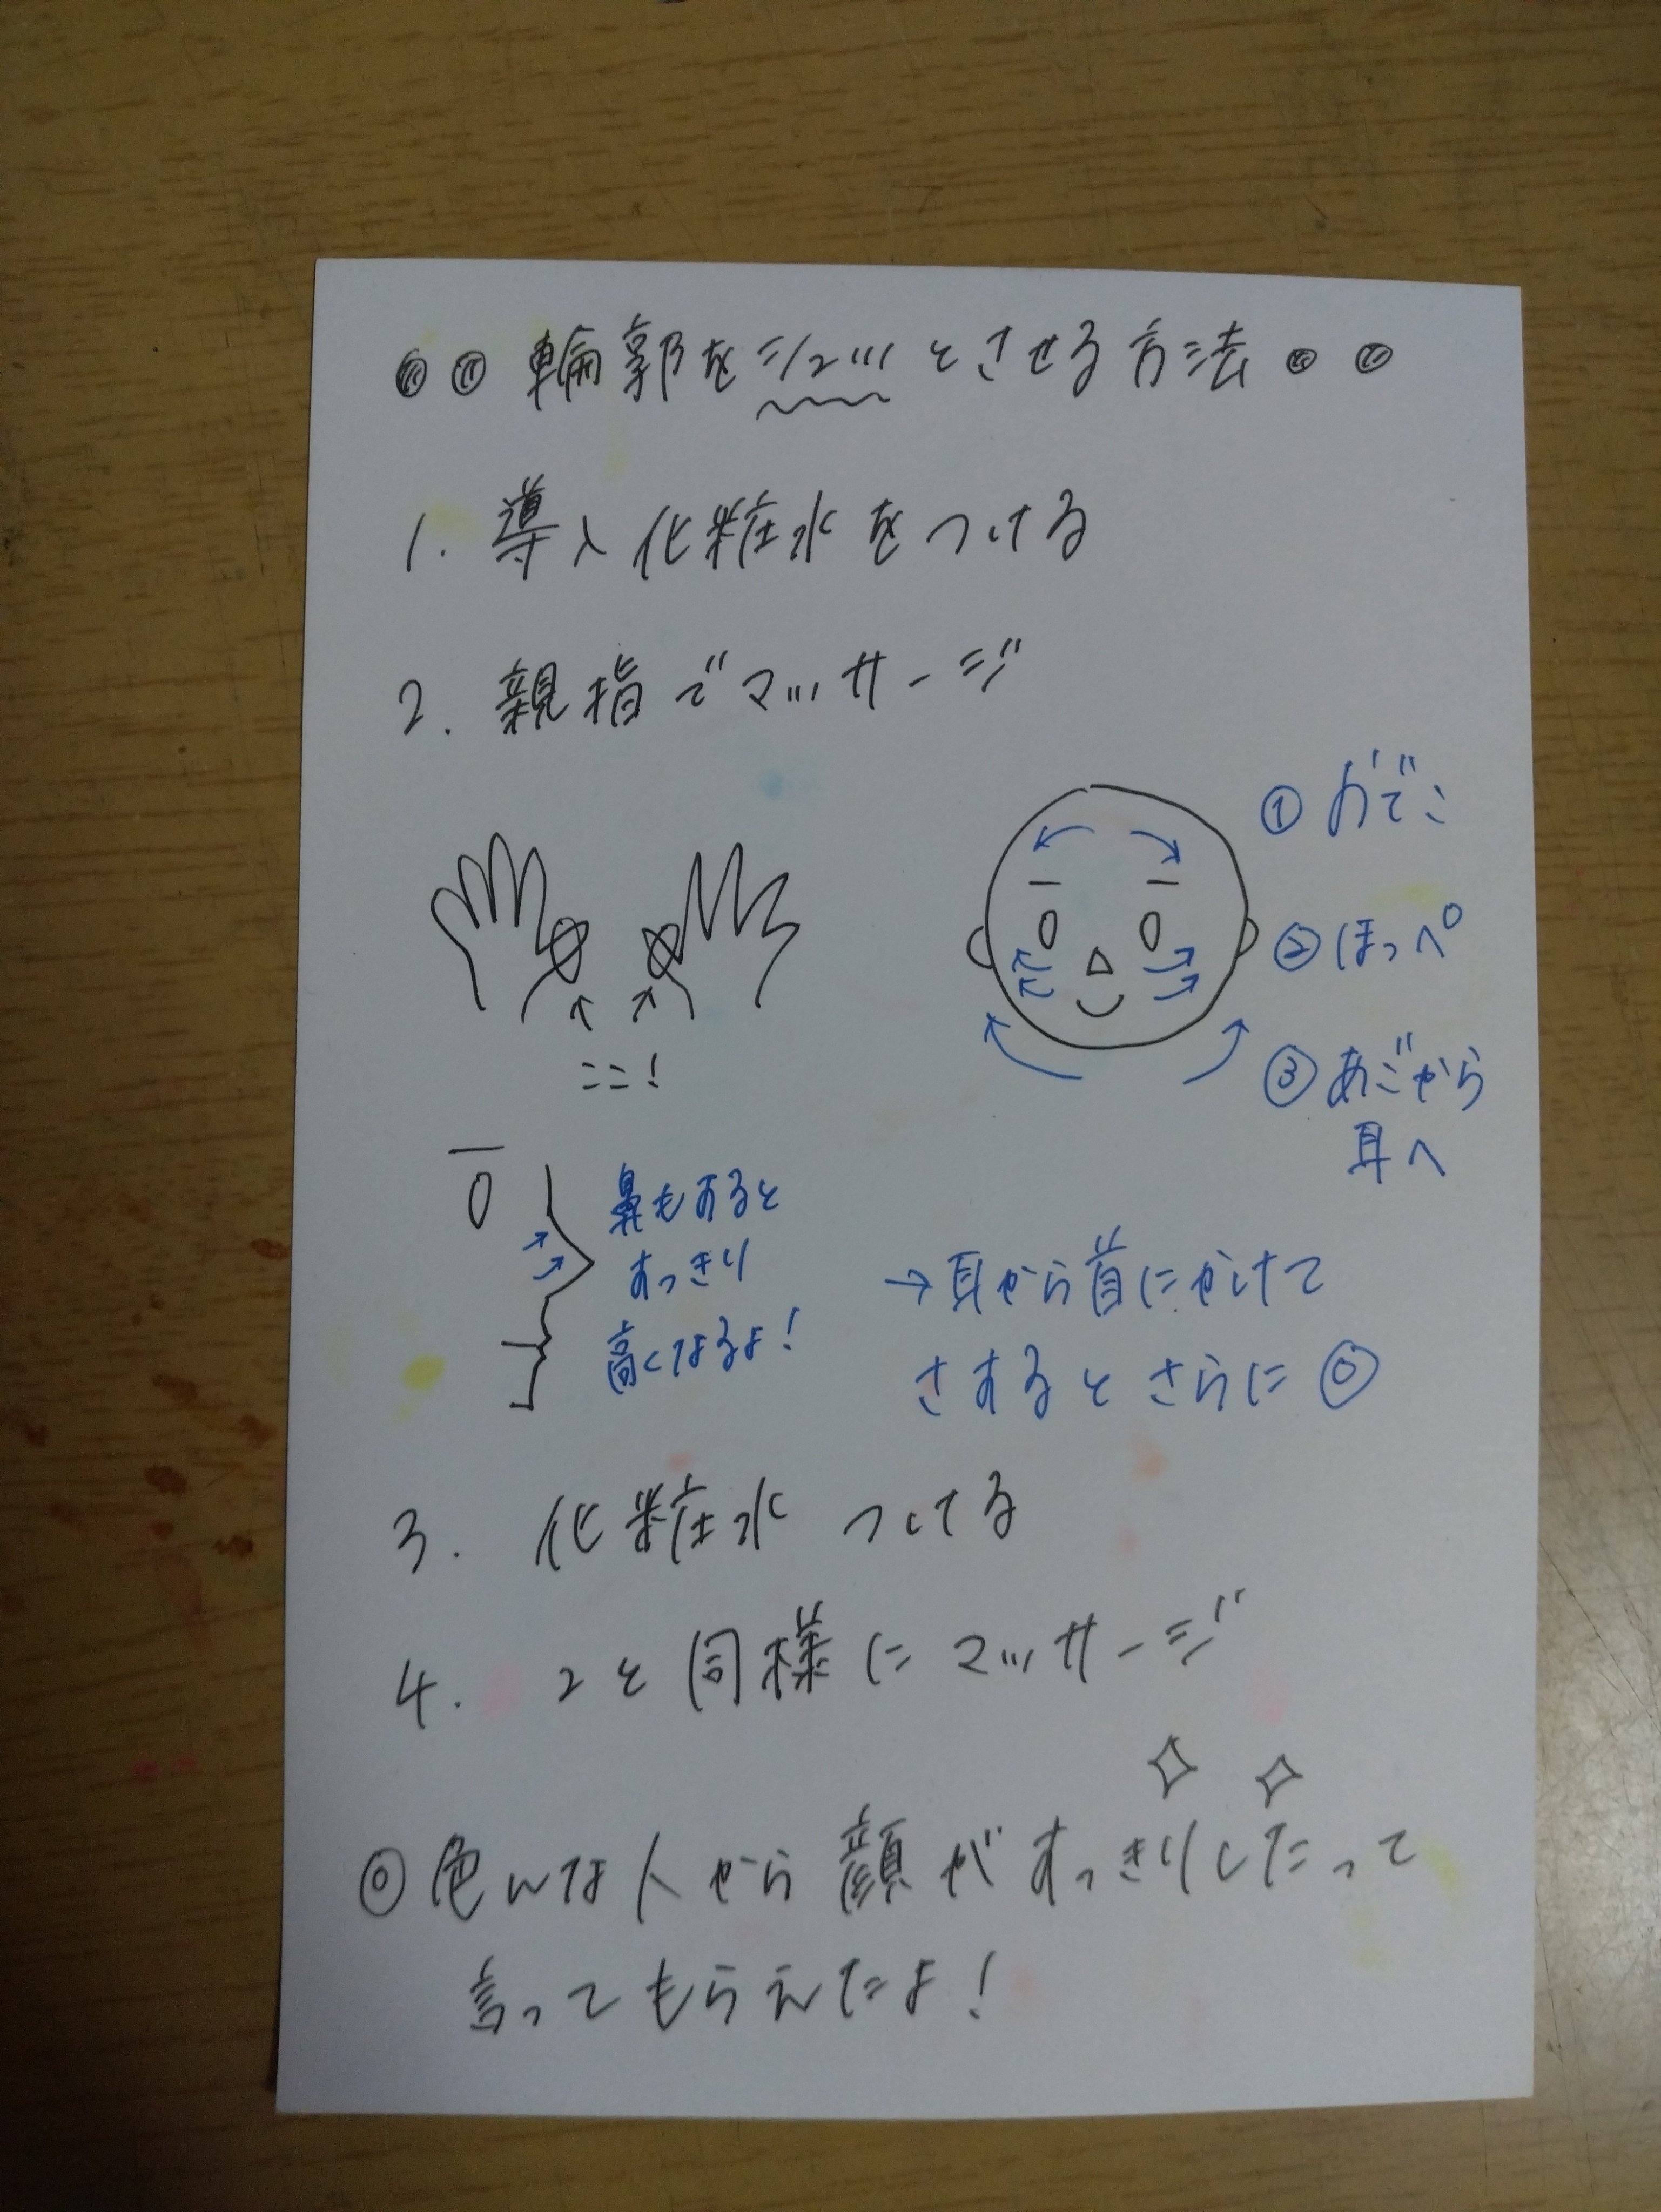 ◎◎ 輪郭をシュッとさせる方法 ◎◎
1. 導入化粧水をつける
2. 親指でマッサージ
ここ!
①おでこ
②ほっぺ
③あごから
耳へ
鼻もすると
すっきり
高くなるよ!
→耳から首にかけて
さするとさらに◎
3. 化粧水つける
4. 2と同様にマッサージ
◎色んな人から顔がすっきりしたって
言ってもらえたよ!